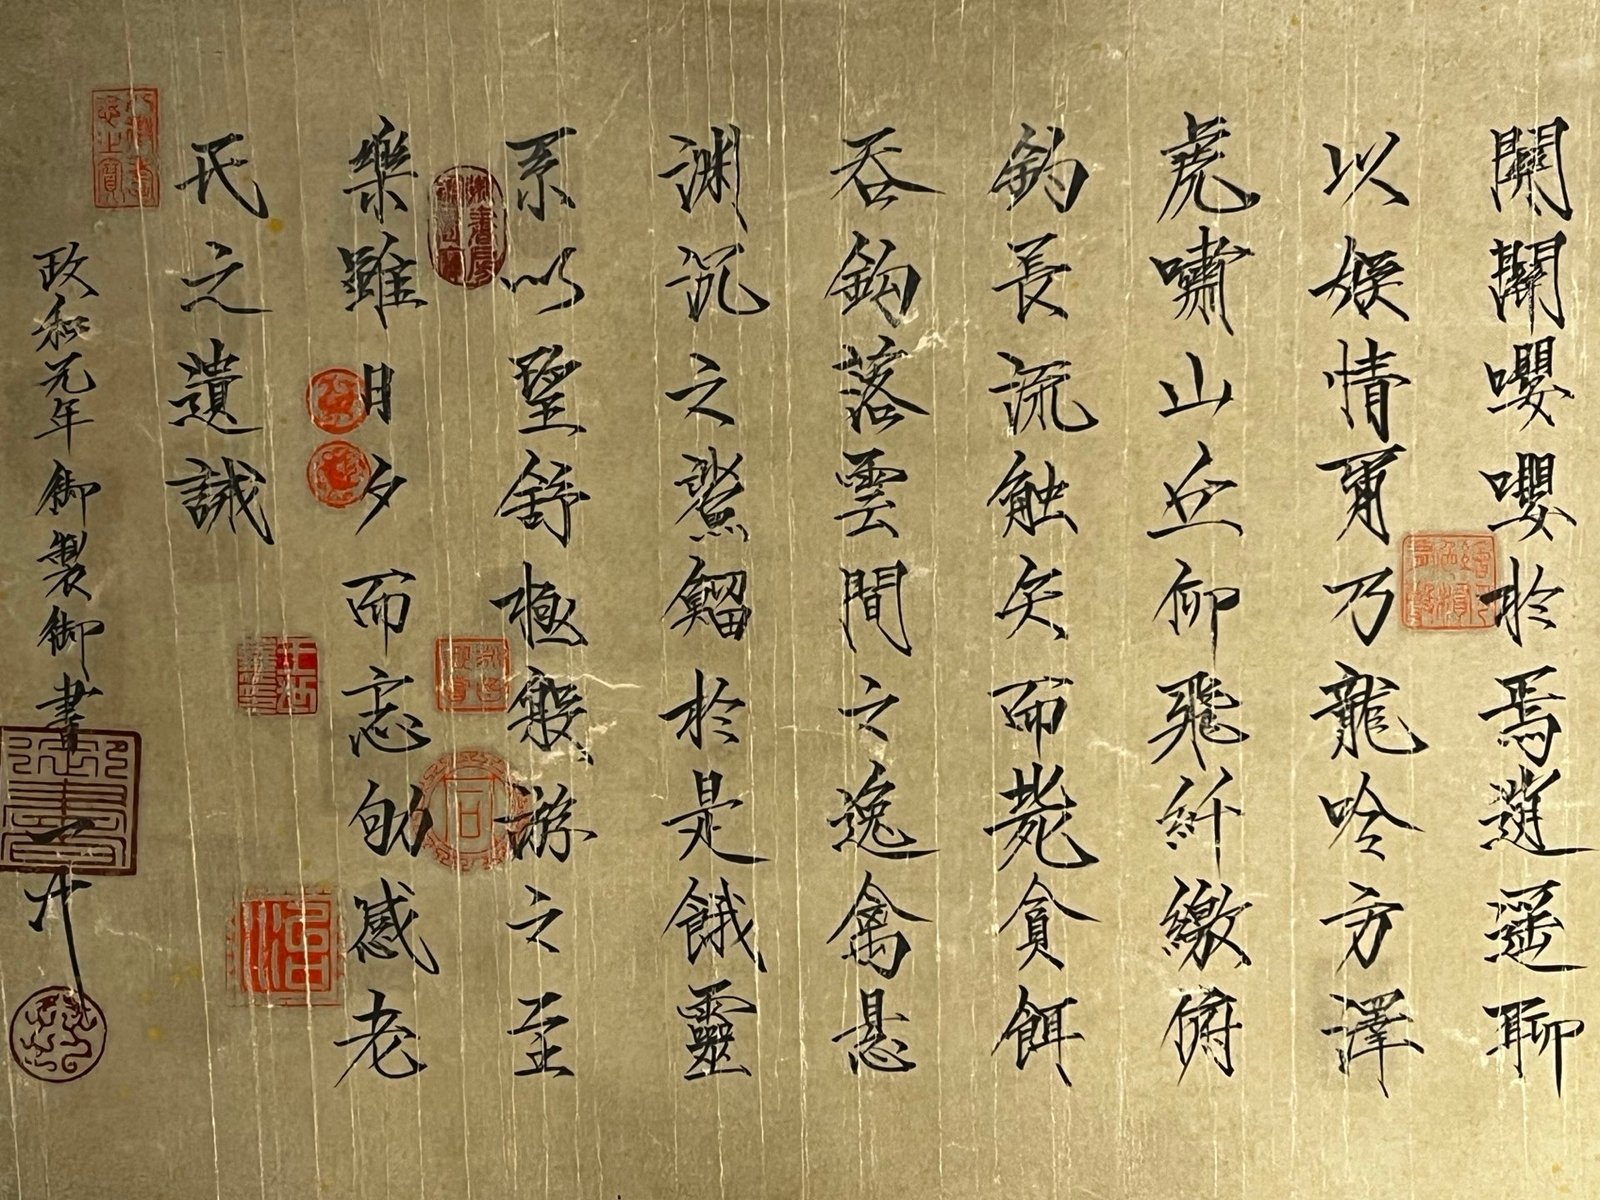 關關嚶嚶於焉逍遥聊
以娱情爾乃龍吟方澤
虎嘯山丘仰飛纤繳俯
釣長流触矢而斃貪餌
吞鈎落雲間之逸禽悬
渊沉之鯊鰡於是餓靈
系以望舒極般游之至
樂雖日夕而忘劬感老
氏之遺誡
政和元年御製御書